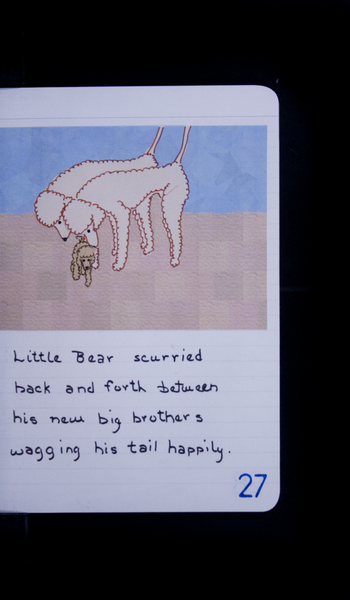 Little Bear scurried
back and forth between
his new big brothers
wagging his tail happily.
27